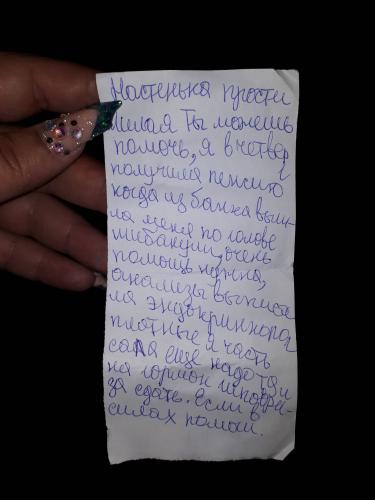 Настенька прости
милая Ты можешь
помочь, я в четвер
получила пенсию
когда из банка выш-
ла меня по голове
шибанули, очень
помощь нужна,
анализы выписа
ла эндокринолог
платные я часть
сдала еще надо та и
на гормон
за сдать. Если в
силах помоги.